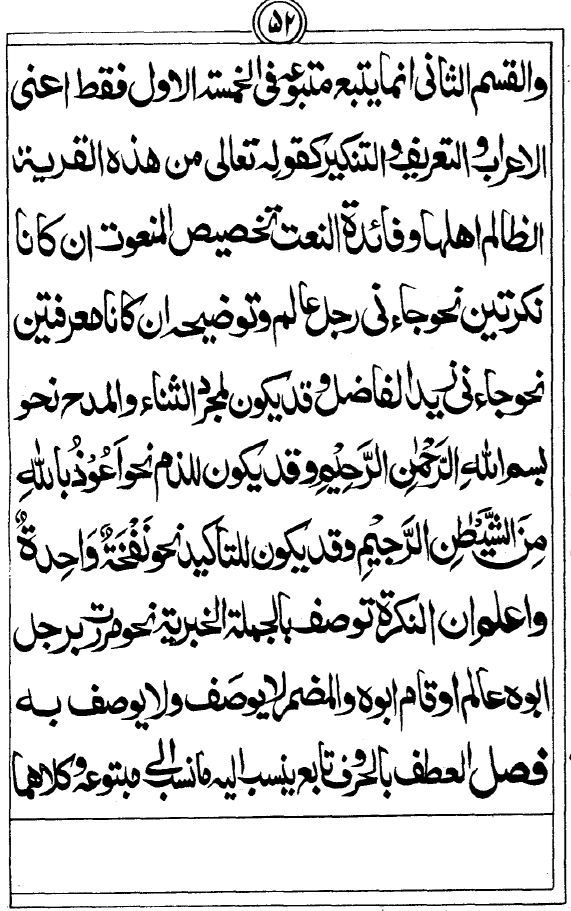 ۵۲
والقسم الثانی انما یتبع متبوعه فی الخمسة الاول فقط اعنی
الاعراب والتعریف والتنکیر کقوله تعالی من هذه القریة
الظالم اهلها وفائدة النعت تخصیص المنعوت ان کانا
نکرتین نحو جاءنی رجل عالم وتوضیحه ان کانا معرفتین
نحو جاءنی زید الفاضل وقد یکون لمجرد الثناء والمدح نحو
بسم اللهِ الرَّحْمٰنِ الرَّحِیْمِ وقد یکون للذم نحو اَعُوْذُ بِاللهِ
مِنَ الشَّیْطٰنِ الرَّجِیْمِ وقد یکون للتاکید نحو نَفْخَةٌ وَاحِدَةٌ
واعلم ان النکرة توصف بالجملة الخبریة نحو مررت برجل
ابوه عالم او قام ابوه والمضمر لا یوصَف ولا یوصف به
فصل العطف بالحروف تابع ینسب الیه ما نسب الی مبتوعه وکلاهما